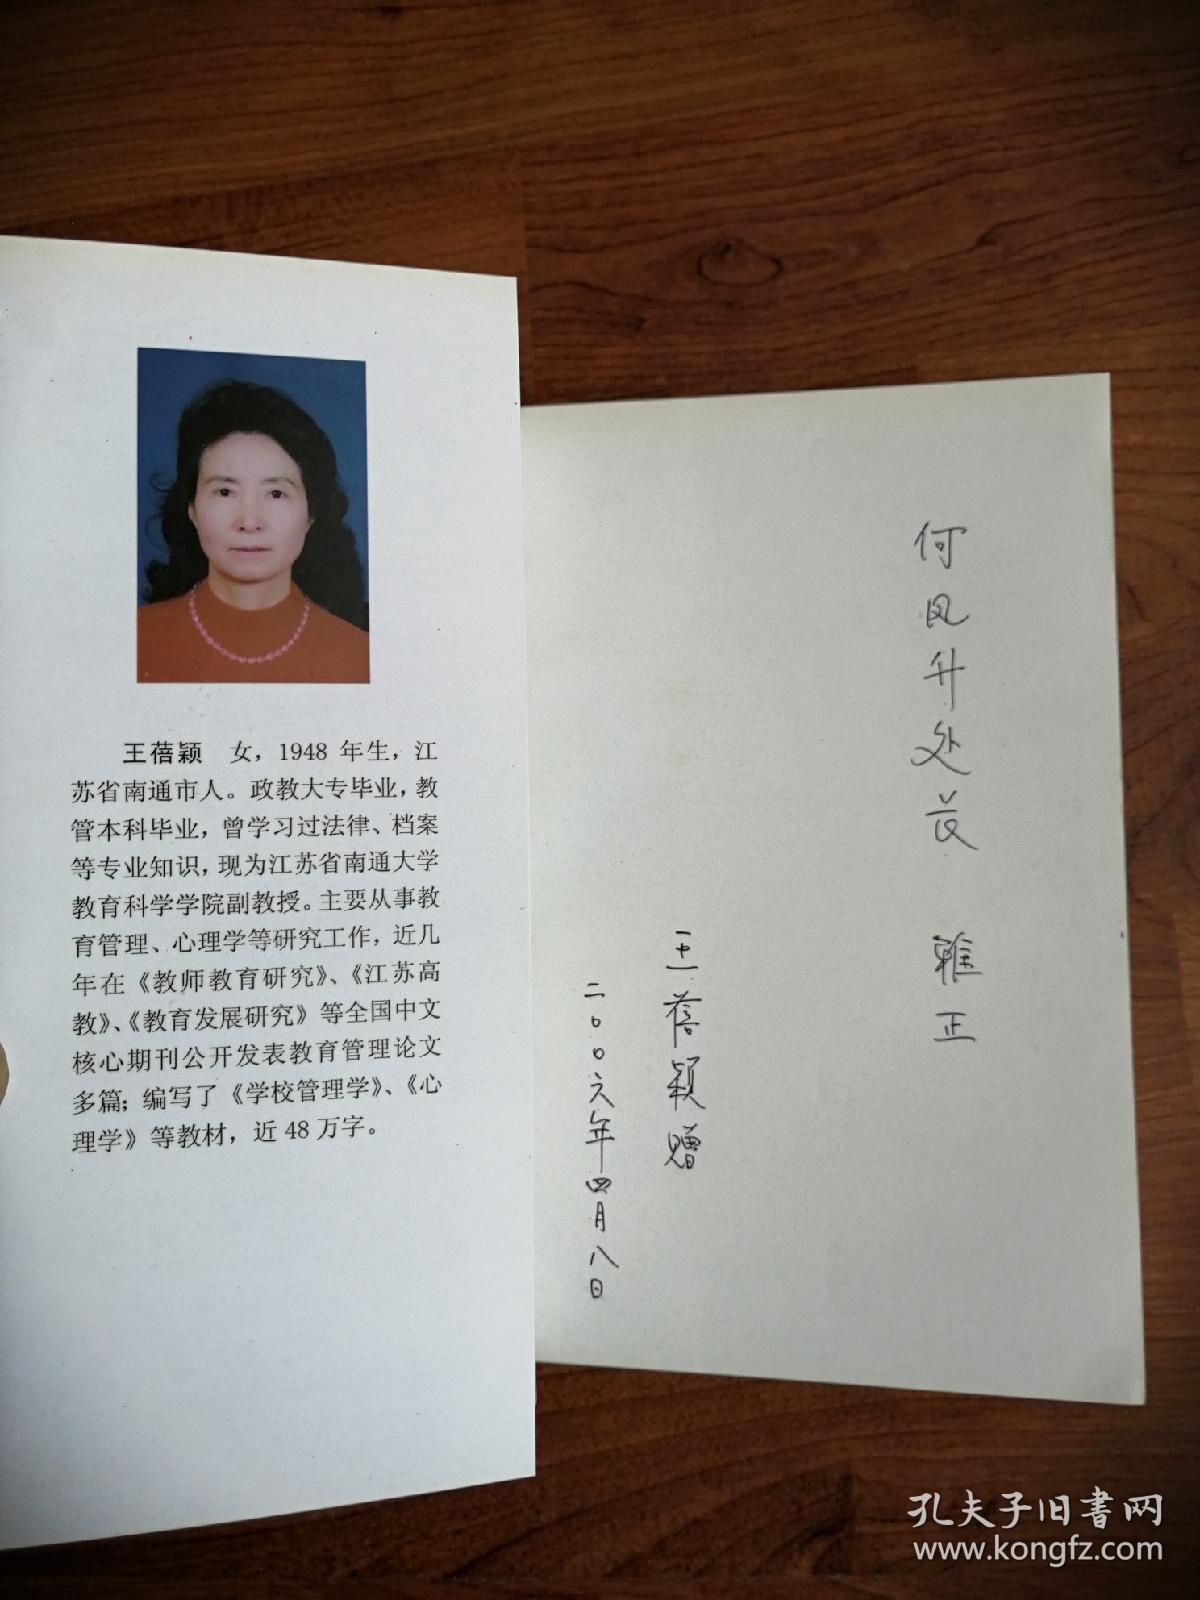 王蓓颖 女，1948 年生，江
苏省南通市人。政教大专毕业，教
管本科毕业，曾学习过法律、档案
等专业知识，现为江苏省南通大学
教育科学学院副教授。主要从事教
育管理、心理学等研究工作，近几
年在《教师教育研究》、《江苏高
教》、《教育发展研究》等全国中文
核心期刊公开发表教育管理论文
多篇；编写了《学校管理学》、《心
理学》等教材，近 48 万字。
何凤升处长 雅正
王蓓颖 赠
二〇〇六年四月八日
孔夫子旧書网
www.kongfz.com